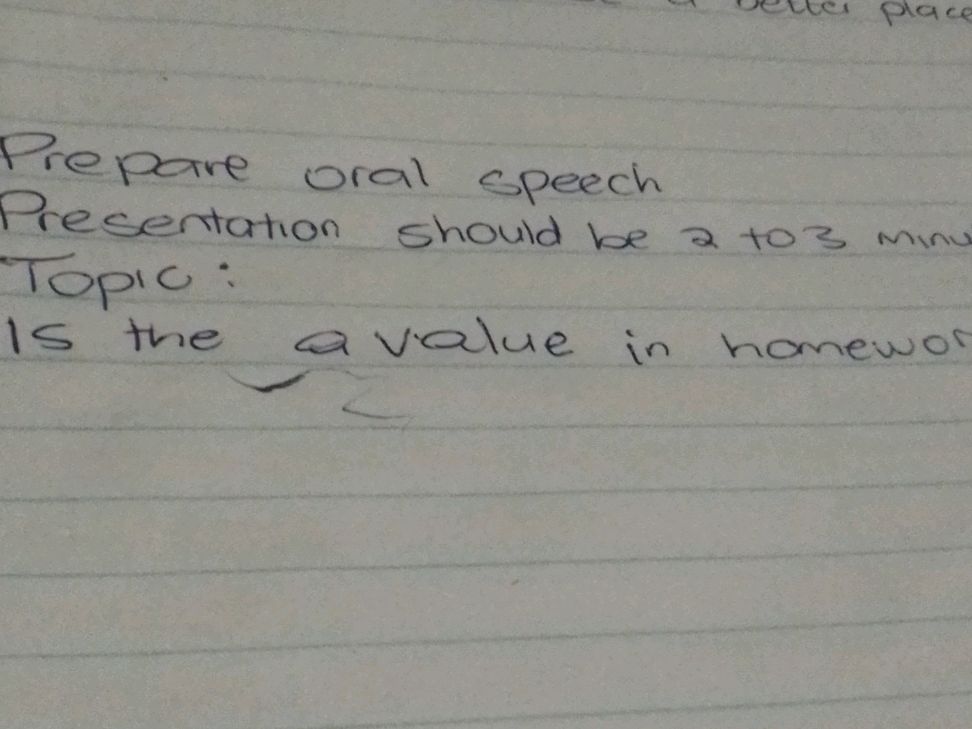 better place
Prepare oral speech
Presentation should be 2 to 3 minu
Topic:
Is the a value in homewor